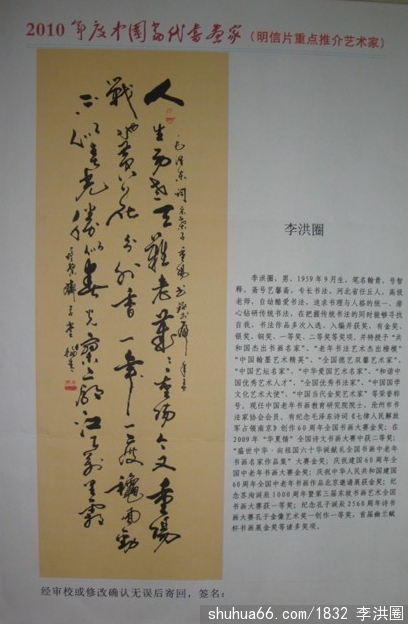 2010年度中国当代书画家(明信片重点推介艺术家)
人生易老天难老岁岁重阳今又重阳
毛泽东词采桑子重阳
战地黄花分外香一年一度秋风劲
不似春光胜似春光寥廓江天万里霜
李洪圈
李洪圈,男,1959年9月生,笔名翰普,号智
释,斋号艺馨斋,专长书法,河北省任丘人,高级
老师,自幼酷爱书法,追求书理与人格的统一,潜
心钻研传统书法,在把握传统书法的同时能够寻找
自我,书法作品多次入选,入编并获奖,有金奖、
银奖、铜奖、一等奖、二等奖等奖项,并特授于"共
和国杰出书画名家"、"老年书法艺术杰出楷模"
"中国翰墨艺术精英"、"全国德艺双馨艺术家"、
"中国艺坛名家"、"中华爱国艺术名家"、"和谐中
国优秀艺术人才"、"全国优秀书法家"、"中国国学
文化艺术大使"、"中国当代金奖艺术家"等荣誉称
号。现任中国老年书画教育研究院院士,沧州市书
法家协会会员。有纪念毛泽东诗词《七律人民解放军
占领南京》创作60周年全国书画大赛金奖;在
2009年"华夏情"全国诗文书画大赛中获二等奖;
"盛世中华·向祖国六十华诞献礼全国书画中老年
书画名家作品集"大赛金奖;庆祝建国60周年全
国中老年书画大赛金奖;庆祝中华人民共和国建国
60周年全国中老年书画作品北京邀请展获金奖;纪
念苏洵诞辰1000周年暨第三届东坡书画艺术全国
书画大赛获一等奖;纪念孔子诞辰2560周年诗书
画大赛孔子金像艺术奖一创作一等奖,首届幽兰赋
杯书画展金奖等诸多奖项。
经审校或修改确认无误后寄回,签名:
shuhua66.com/1832 李洪圈